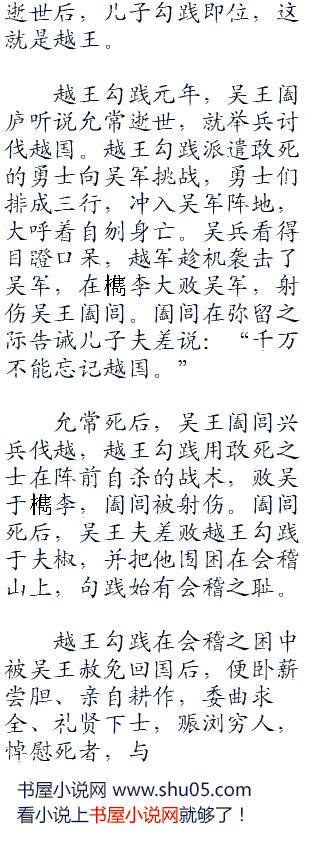 逝世后，儿子勾践即位，这
就是越王。
越王勾践元年，吴王阖
庐听说允常逝世，就举兵讨
伐越国。越王勾践派遣敢死
的勇士向吴军挑战，勇士们
排成三行，冲入吴军阵地，
大呼着自刎身亡。吴兵看得
目瞪口呆，越军趁机袭击了
吴军，在檇李大败吴军，射
伤吴王阖闾。阖闾在弥留之
际告诫儿子夫差说：“千万
不能忘记越国。”
允常死后，吴王阖闾兴
兵伐越，越王勾践用敢死之
士在阵前自杀的战术，败吴
于檇李，阖闾被射伤。阖闾
死后，吴王夫差败越王勾践
于夫椒，并把他围困在会稽
山上，句践始有会稽之耻。
越王勾践在会稽之困中
被吴王赦免回国后，便卧薪
尝胆、亲自耕作，委曲求
全、礼贤下士，赈浏穷人，
悼慰死者，与
书屋小说网 www.shu05.com
看小说上书屋小说网就够了！